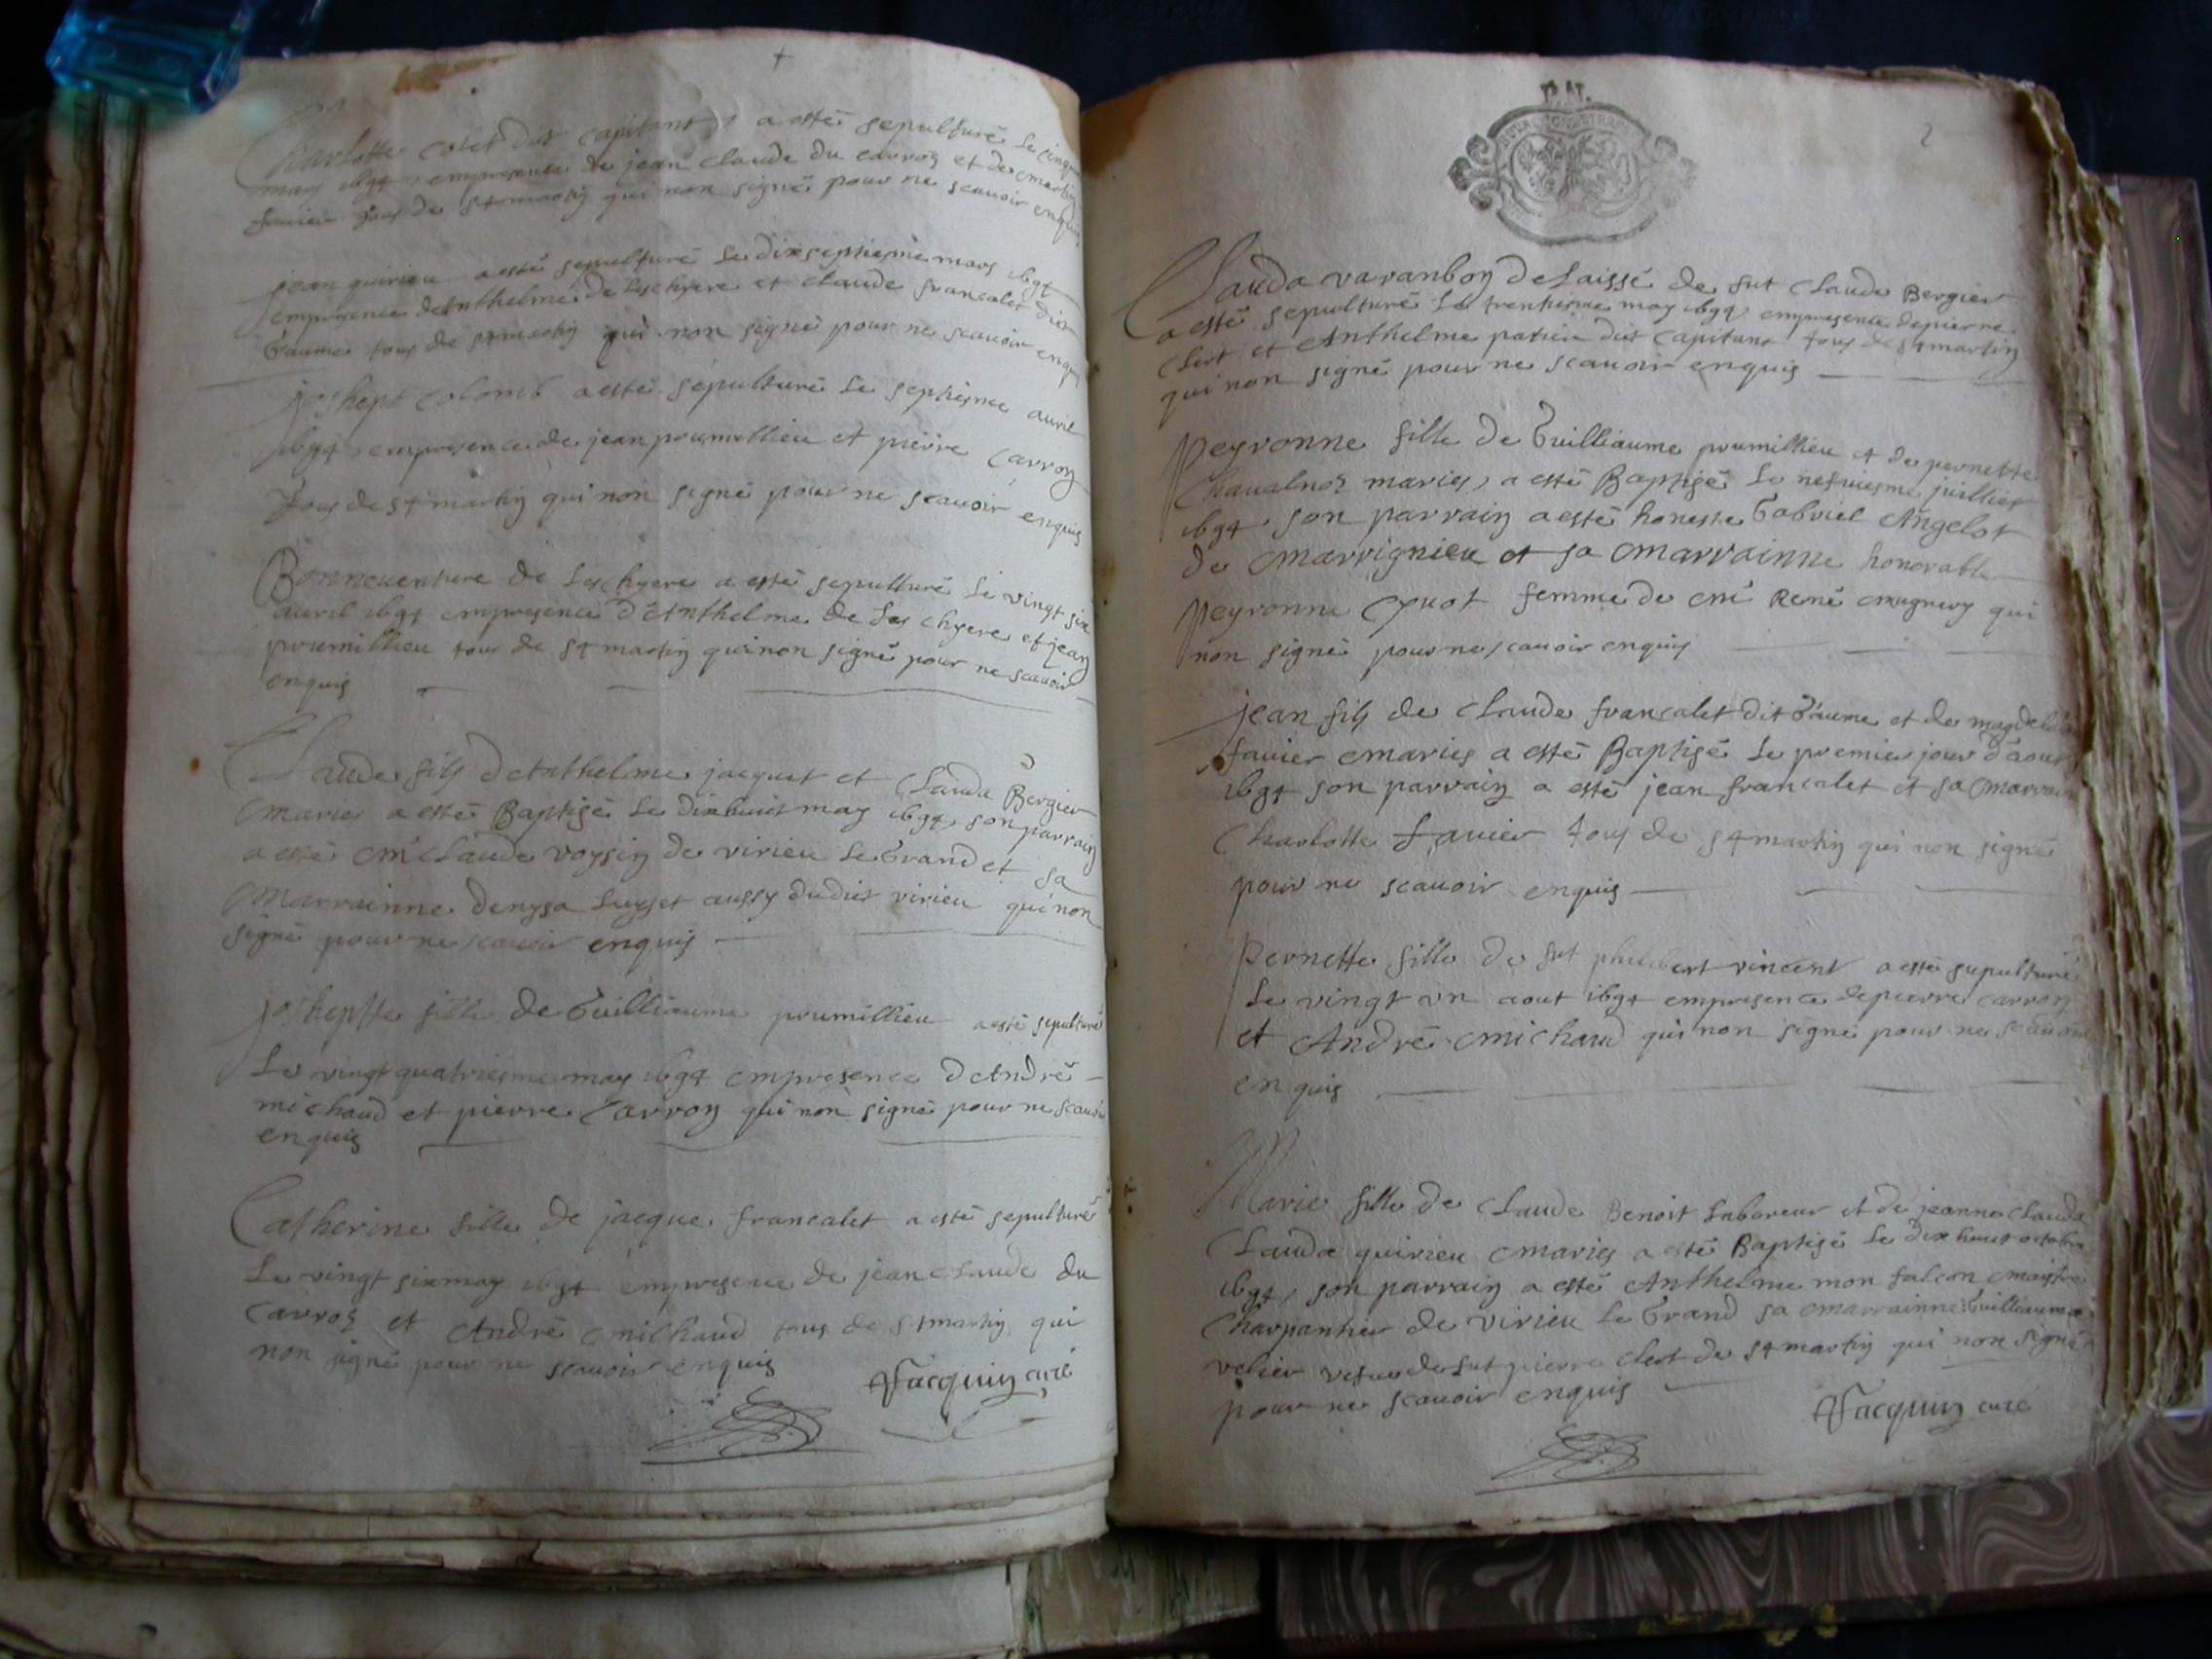 Charlotte colet dit capitant a esté sepulturé le cinq
may 1694 empresence de jean claude du carroz et de martin
favier tous de st martin qui non signé pour ne scauoir enquis
jean quirieu a esté sepulturé le dixseptiesme mars 1694
empresence d'Anthelme de Leschyere et claude francalet dit
Guaume tous de st martin qui non signé pour ne scauoir enquis
joshept colomb a esté sepulturé le septiesme auril
1694 empresence de jean poumillieu et pierre carroz
tous de st martin qui non signé pour ne scauoir enquis
Bonneuenture de Leschyere a esté sepulturé le vingt six
auril 1694 empresence d'Anthelme de Leschyere et jean
proumillieu tous de st martin qui non signé pour ne scauoir
enquis
Claude fils d'Anthelme jacquet et Clauda Bergier
maries a esté Baptisé le dixhuict may 1694 son parrain
a esté me Claude voysin de virieu le Grand et sa
Marrainne denysa Luyset aussy dudit virieu qui non
signé pour ne scauoir enquis
joshepte fille de Guilliaume proumillieu a esté sepulturé
Le vingt quatriesme may 1694 empresence d'André
michaud et pierre Carroz qui non signé pour ne scauoir
enquis
Catherine fille de jacque francalet a esté sepulturé
Le vingt six may 1694 empresence de jean claude du
carroz et André michaud tous de st martin qui
non signé pour ne scauoir enquis
Jacquin curé
2
Clauda varanbon delaissé de fut Claude Bergier
a esté sepulturé le trentiesme may 1694 empresence de pierre
Clert et Anthelme dit Capitant tous de st martin
qui non signé pour ne scauoir enquis
Peyronne fille de Guilliaume proumillieu et de pernette
maries a esté Baptisé le nefuiesme juilliet
1694 son parrain a esté honeste Gabriel Angelot
de Marrignieu et sa marrainne honorable
Peyronne femme de me René qui
non signé pour ne scauoir enquis
jean fils de Claude francalet dit Guaume et de
favier maries a esté Baptisé le premier jour d'aoust
1694 son parrain a esté jean francalet et sa marrainne
Charlotte favier tous de st martin qui non signé
pour ne scauoir enquis
Pernette fille de fut philibert vincent a esté sepulturé
Le vingt vn aout 1694 empresence de pierre carroz
et André michaud qui non signé pour ne scauoir
enquis
Marie fille de Claude Benoit Laboreur et de jeanne Clauda
Clauda quirieu maries a esté Baptisé le dixhuict octobre
1694 son parrain a esté Anthelme mon falcon maistre
Charpantier de virieu le Grand sa marrainne Guilliauma
velier vefue de fut pierre Clert de st martin qui non signé
pour ne scauoir enquis
Jacquin curé